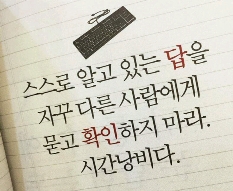 스스로 알고 있는 답을
자꾸 다른 사람에게
묻고 확인하지 마라.
시간낭비다.